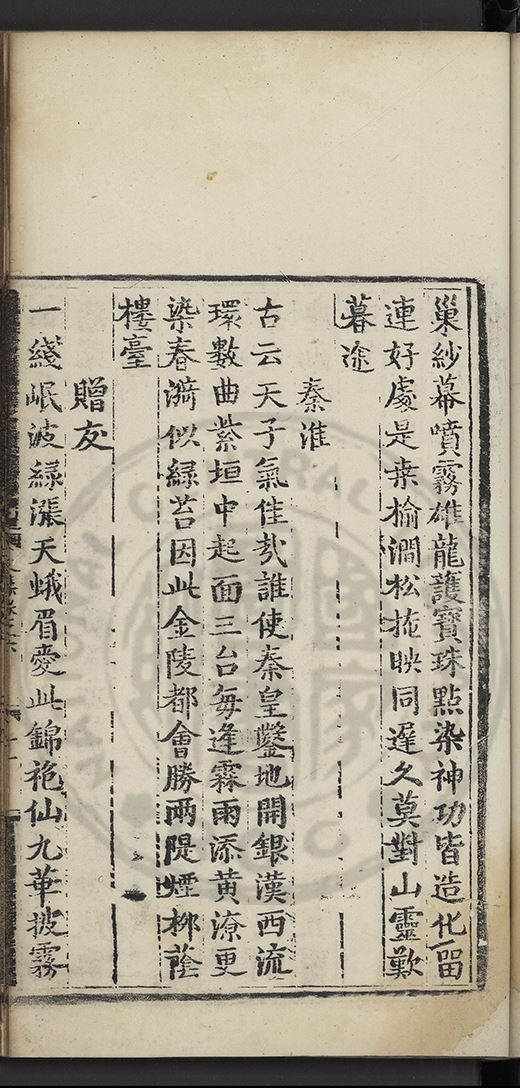 巢紗幕噴霧雄龍護寶珠點染神功皆造化留
連好處是桑榆澗松掩映同遲久莫對山靈歎
暮途
秦淮
古云天子氣佳哉誰使秦皇鑿地開銀漢西流
環數曲紫垣中起面三台每逢霖雨添黃潦更
染春漪似綠苔因此金陵都會勝兩隄煙柳蔭
樓臺
贈友
一綫岷波綠漲天蛾眉愛此錦袍仙九華披霧